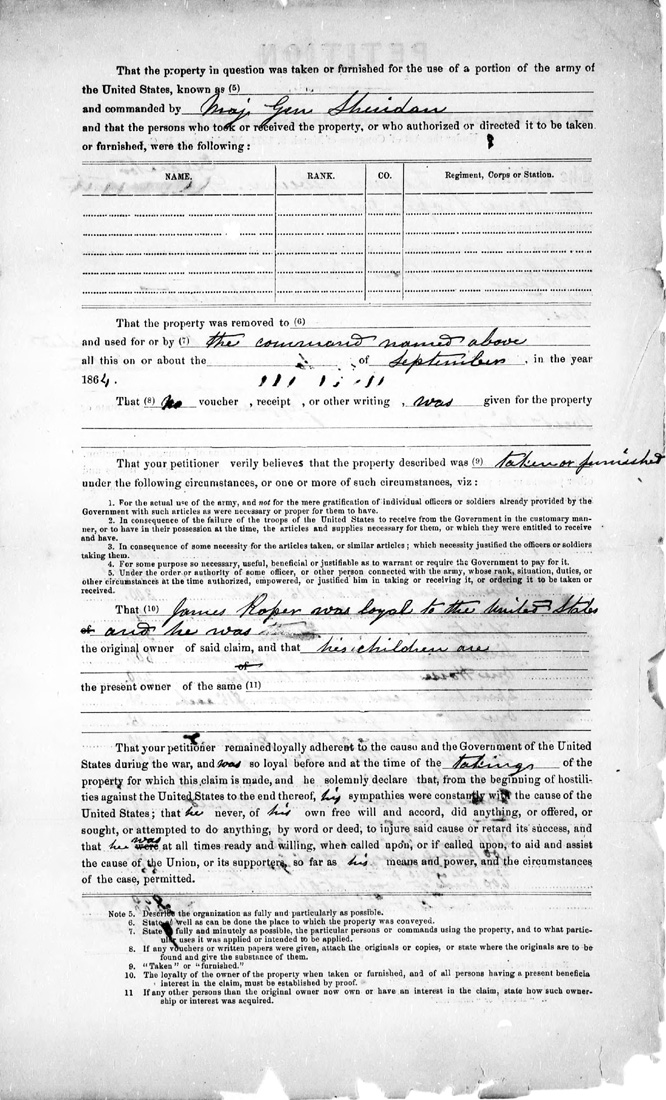 That the property in question was taken or furnished for the use of a portion of the army of
the United States, known as (5)
and commanded by Maj Gen Sheridan
and that the persons who took or received the property, or who authorized or directed it to be taken
or furnished, were the following:
NAME. RANK. CO. Regiment, Corps or Station.
That the property was removed to (6)
and used for or by (7) the command named above
all this on or about the of September, in the year
1864.
That (8) no voucher, receipt, or other writing, was given for the property
That your petitioner verily believes that the property described was (9) taken or furnished
under the following circumstances, or one or more of such circumstances, viz:
1. For the actual use of the army, and not for the mere gratification of individual officers or soldiers already provided by the
Government with such articles as were necessary or proper for them to have.
2. In consequence of the failure of the troops of the United States to receive from the Government in the customary man-
ner, or to have in their possession at the time, the articles and supplies necessary for them, or which they were entitled to receive
and have.
3. In consequence of some necessity for the articles taken, or similar articles; which necessity justified the officers or soldiers
taking them.
4. For some purpose so necessary, useful, beneficial or justifiable as to warrant or require the Government to pay for it.
5. Under the order or authority of some officer, or other person connected with the army, whose rank, situation, duties, or
other circumstances at the time authorized, empowered, or justified him in taking or receiving it, or ordering it to be taken or
received.
That (10) James Roper was loyal to the United States
of and he was
the original owner of said claim, and that his children are
of
the present owner of the same (11)
That your petitioner remained loyally adherent to the cause and the Government of the United
States during the war, and was so loyal before and at the time of the takings of the
property for which this claim is made, and he solemnly declare that, from the beginning of hostili-
ties against the United States to the end thereof, his sympathies were constantly with the cause of the
United States; that he never, of his own free will and accord, did anything, or offered, or
sought, or attempted to do anything, by word or deed, to injure said cause or retard its success, and
that he was were at all times ready and willing, when called upon, or if called upon, to aid and assist
the cause of the Union, or its supporters, so far as his means and power, and the circumstances
of the case, permitted.
Note 5. Describe the organization as fully and particularly as possible.
6. State as well as can be done the place to which the property was conveyed.
7. State fully and minutely as possible, the particular persons or commands using the property, and to what partic-
ular uses it was applied or intended to be applied.
8. If any vouchers or written papers were given, attach the originals or copies, or state where the originals are to be
found and give the substance of them.
9. "Taken" or "furnished."
10. The loyalty of the owner of the property when taken or furnished, and of all persons having a present beneficia
interest in the claim, must be established by proof.
11 If any other persons than the original owner now own or have an interest in the claim, state how such owner-
ship or interest was acquired.